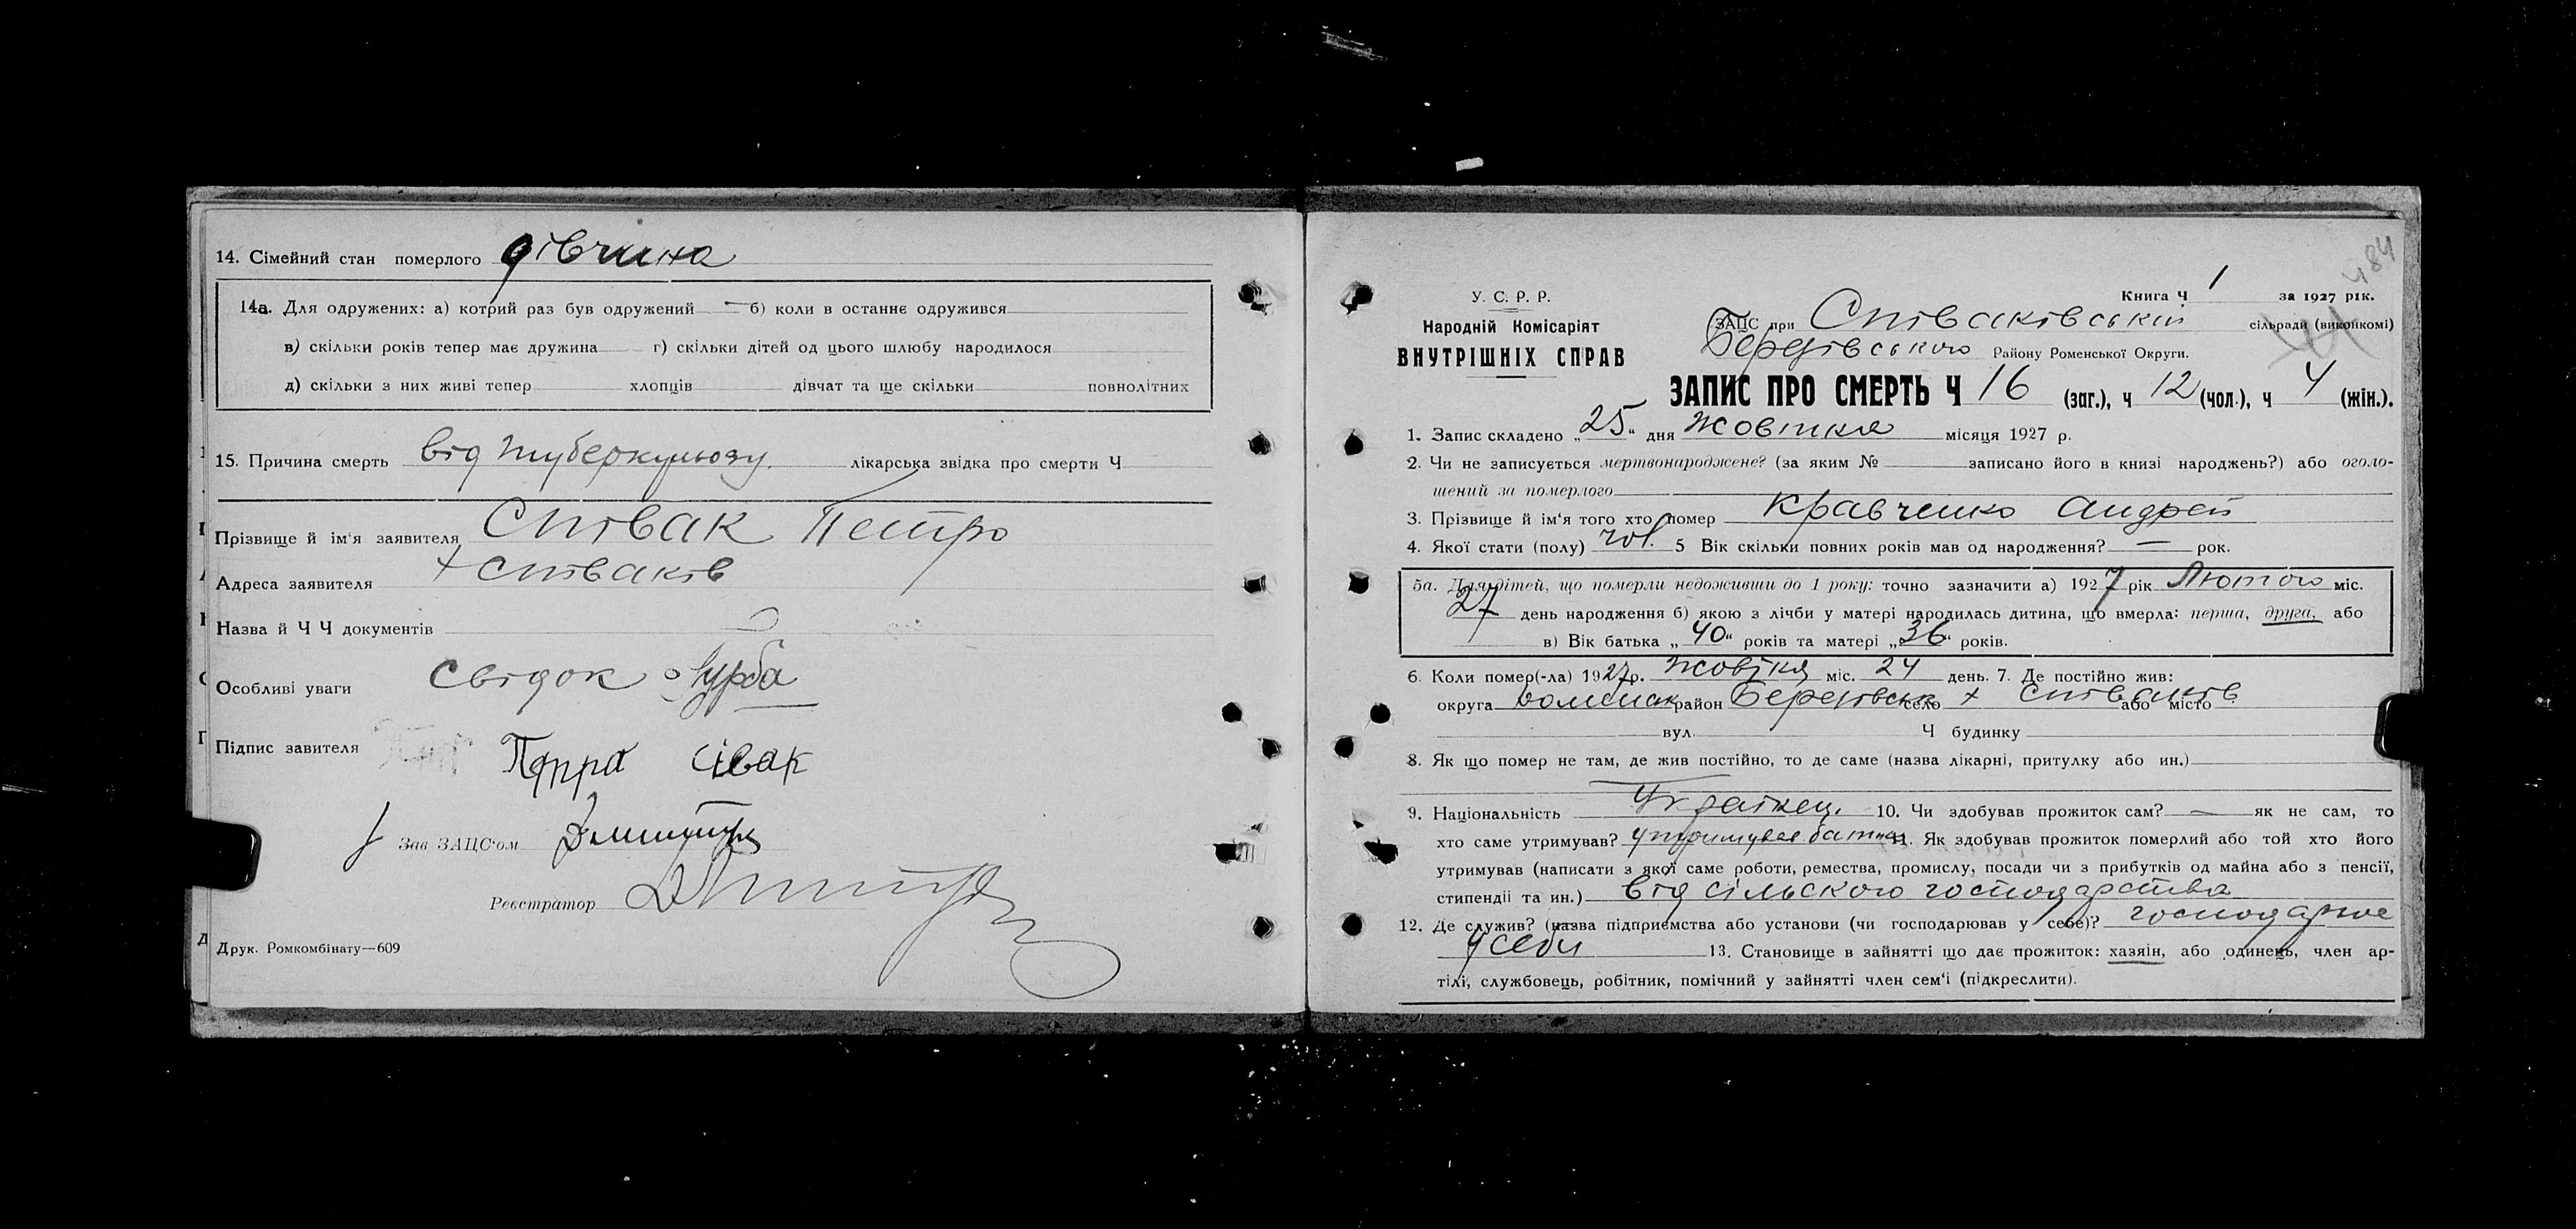 14. Сімейний стан померлого дівчина
14а. Для одружених: а) котрий раз був одружений — б) коли в останнє одружився
в) скільки років тепер має дружина г) скільки дітей од цього шлюбу народилося
д) скільки з них живі тепер хлопців дівчат та ще скільки повнолітних
15. Причина смерть від туберкульозу. лікарська звідка про смерти Ч
Прізвище й ім'я заявителя Співак Петро
Адреса заявителя х Співаків
Назва й Ч Ч документів
Особливі уваги свідок Гурба
Підпис завителя Сівак
Зав ЗАЦС'ом
Реєстратор
Друк. Ромкомбінату—609
484
У. С. Р. Р.
Народній Комісаріят
ВНУТРІШНІХ СПРАВ
Книга Ч 1 за 1927 рік.
ЗАЦС при Співаківській сільради (виконкомі)
Березівського Району Роменської Округи.
ЗАПИС ПРО СМЕРТЬ Ч 16 (заг.), ч 12 (чол.), ч 4 (жін.).
1. Запис складено „25“ дня Жовтня місяця 1927 р.
2. Чи не записується мертвонароджене? (за яким № записано його в книзі народжень?) або оголо-
шений за померлого
3. Прізвище й ім'я того хто помер Кравченко Андрей
4. Якої стати (полу) чол. 5 Вік скільки повних років мав од народження? — рок.
5а. Для дітей, що померли недоживши до 1 року: точно зазначити а) 1927 рік Лютого міс.
27 день народження б) якою з лічби у матері народилась дитина, що вмерла: перша, друга, або
в) Вік батька „40“ років та матері „36“ років.
6. Коли помер(-ла) 1927 р. міс. 24 день. 7. Де постійно жив:
округа район Березівськ село х Співаків або місто
вул. Ч будинку
8. Як що помер не там, де жив постійно, то де саме (назва лікарні, притулку або ин.)
9. Національність Українец. 10. Чи здобував прожиток сам? — як не сам, то
хто саме утримував? утримував батько 11. Як здобував прожиток померлий або той хто його
утримував (написати з якої саме роботи, ремества, промислу, посади чи з прибутків од майна або з пенсії,
стипендіі та ин.) від сільского господарства
12. Де служив? (назва підприємства або установи (чи господарював у себе)?
у себи 13. Становище в зайнятті що дає прожиток: хазяін, або одинець, член ар-
тілі, службовець, робітник, помічний у зайнятті член сем'і (підкреслити).